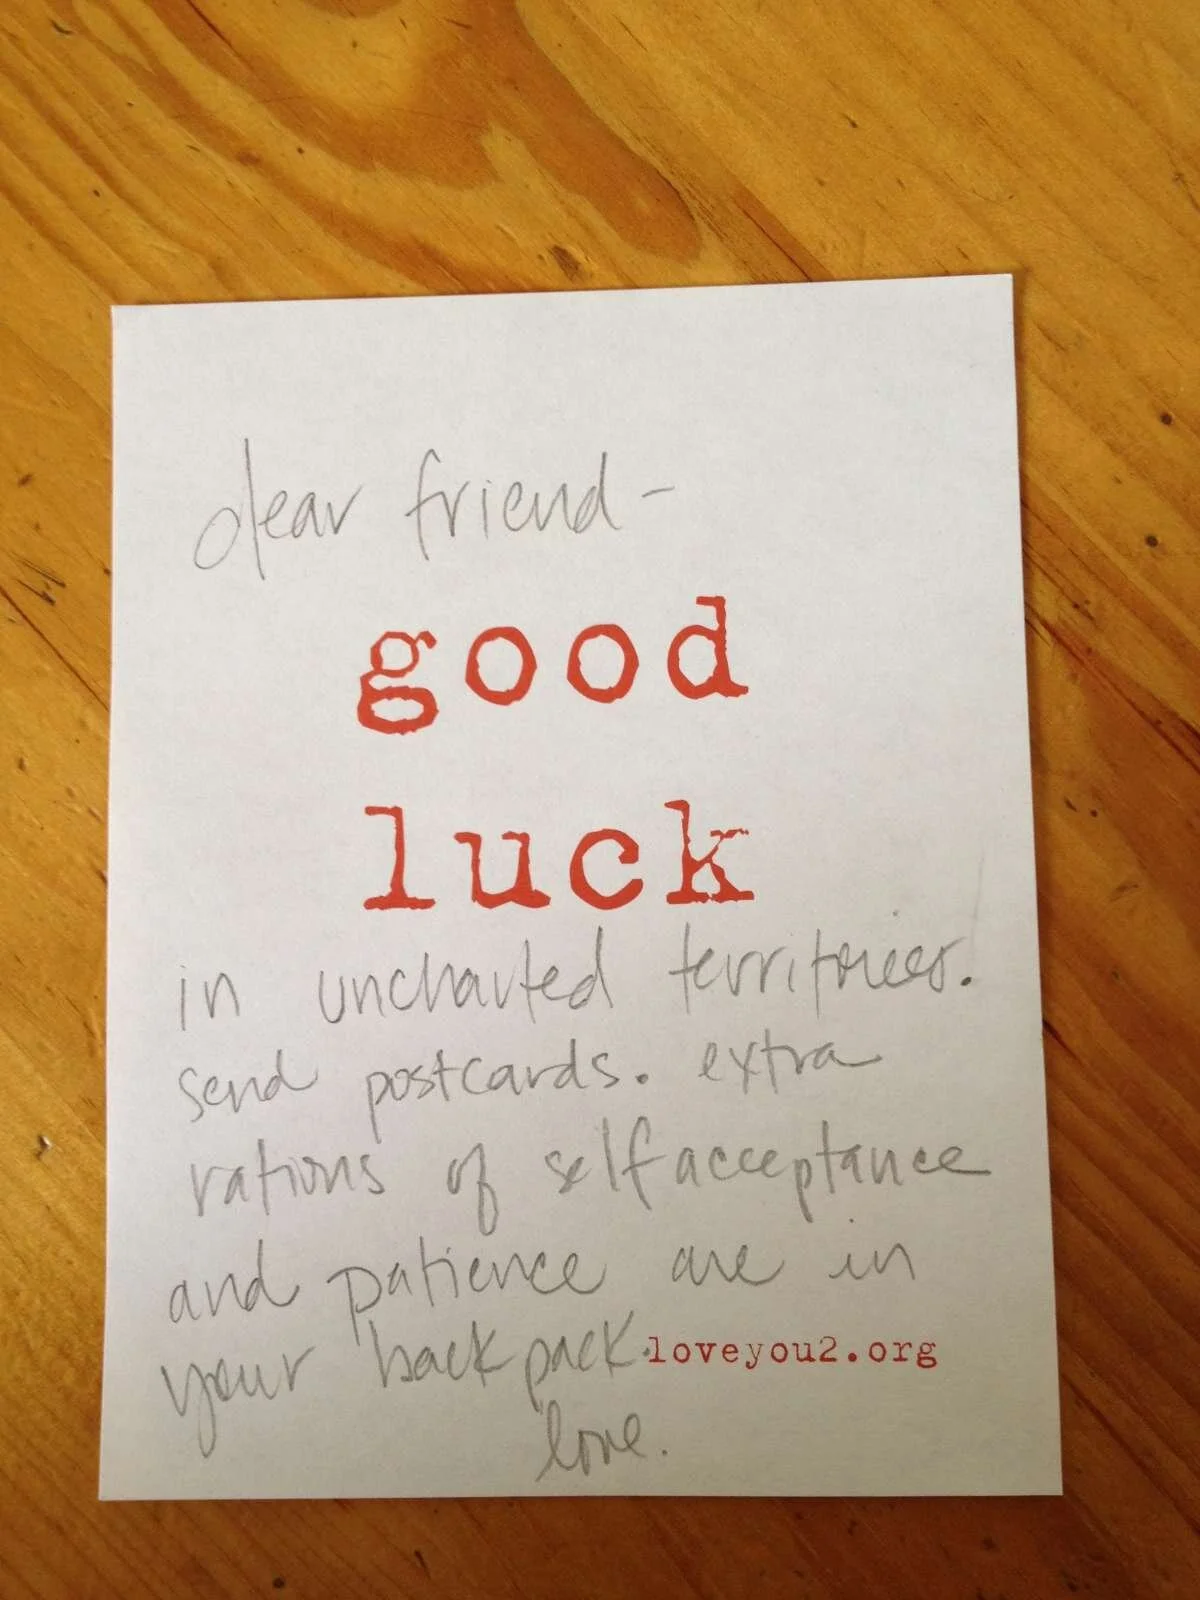 dear friend-
good
luck
in uncharted territories.
send postcards. extra
rations of self acceptance
and patience are in
your backpack.
loveyou2.org
love.